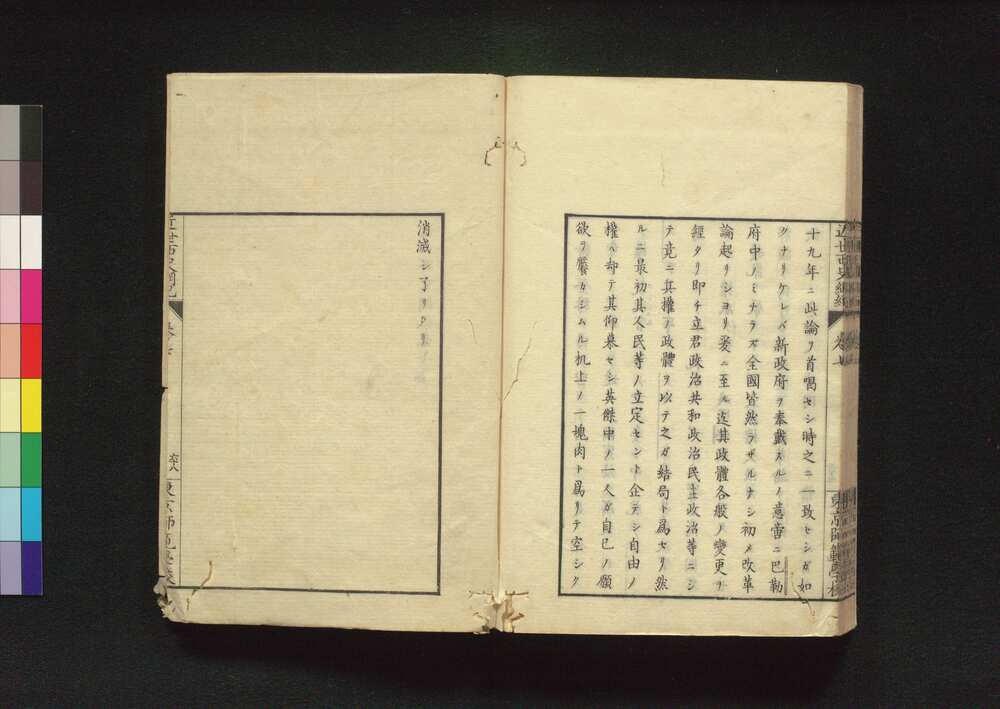 十九年ニ此論ヲ首唱セシ時之ニ一致セシガ如
クナリケレバ新政府ヲ奉戴スルノ意啻ニ巴勒
府中ノミナラズ全國皆然ラザルナシ初メ改革
論起リシヨリ爰ニ至ル迄其政體各般ノ變更ヲ
經タリ即チ立君政治共和政治民主政治等ニシ
テ竟ニ兵權ノ政體ヲ以テ之ガ結局ト爲セリ然
ルニ最初其人民等ノ立定セント企テシ自由ノ
權ハ却テ其仰慕セシ英傑中ノ一人ガ自己ノ願
欲ヲ饜カシムル机上ノ一塊肉ト爲リテ空シク
近世西史綱紀 卷七
東京師範學校
消滅シ了リタリ
近世西史綱紀 卷七
東京師範學校